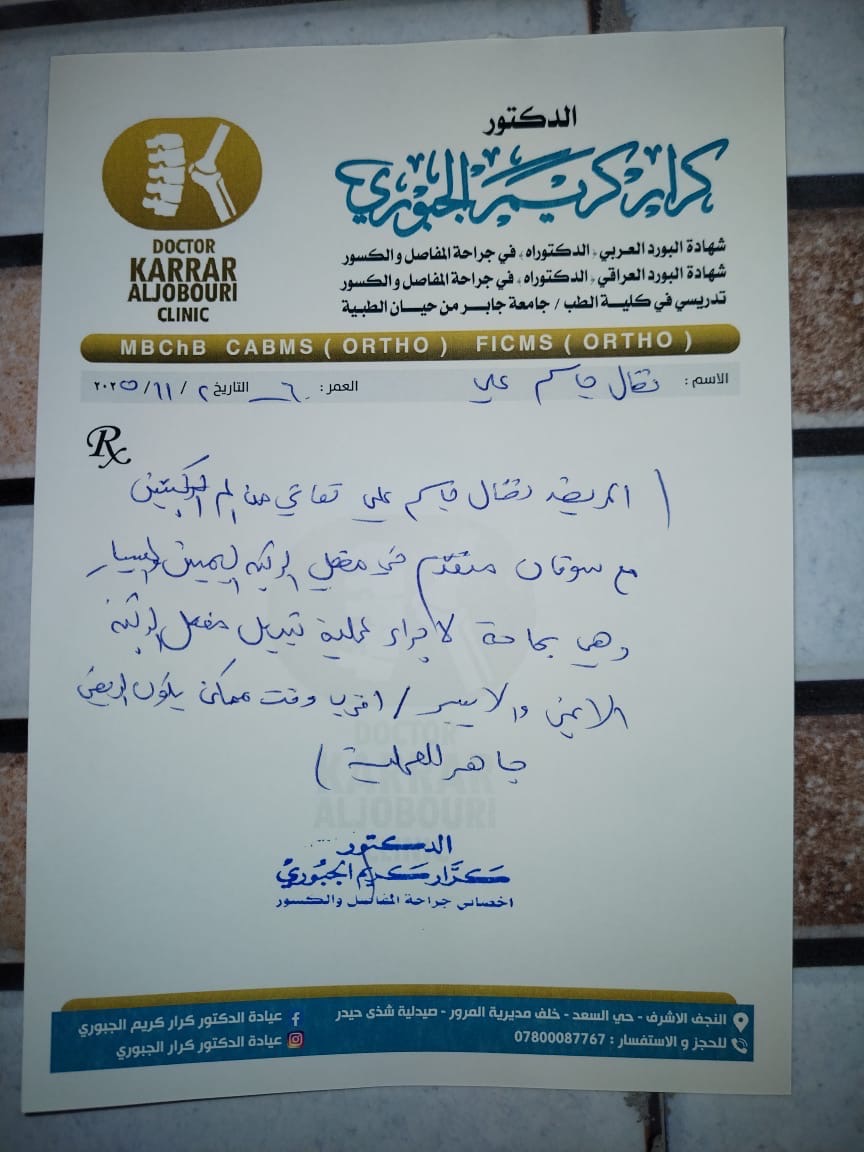 الدكتور
كرار كريم الجبوري
DOCTOR
KARRAR
ALJOBOURI
CLINIC
شهادة البورد العربي (الدكتوراه) في جراحة المفاصل والكسور
شهادة البورد العراقي (الدكتوراه) في جراحة المفاصل والكسور
تدريسي في كلية الطب / جامعة جابر من حيان الطبية
MBChB CABMS ( ORTHO ) FICMS ( ORTHO )
الاسم : جاسم علي العمر : التاريخ ٢ / ١١ / ٢٠٢٥
Rx
( المريضة علي تعاني من الم الركبتين
مع سوفان متقدم في مفصل الركبة اليمين واليسار
وهي بحاجة لاجراء عملية تبديل مفصل الركبة
الايمن والايسر / اقرب وقت ممكن يكون المريض
جاهز للعملية )
DOCTOR
KARRAR
ALJOBOURI
الدكتور
كرار كريم الجبوري
اخصائي جراحة المفاصل والكسور
النجف الاشرف - حي السعد - خلف مديرية المرور - صيدلية شذى حيدر
للحجز و الاستفسار : 07800087767
عيادة الدكتور كرار كريم الجبوري
عيادة الدكتور كرار الجبوري